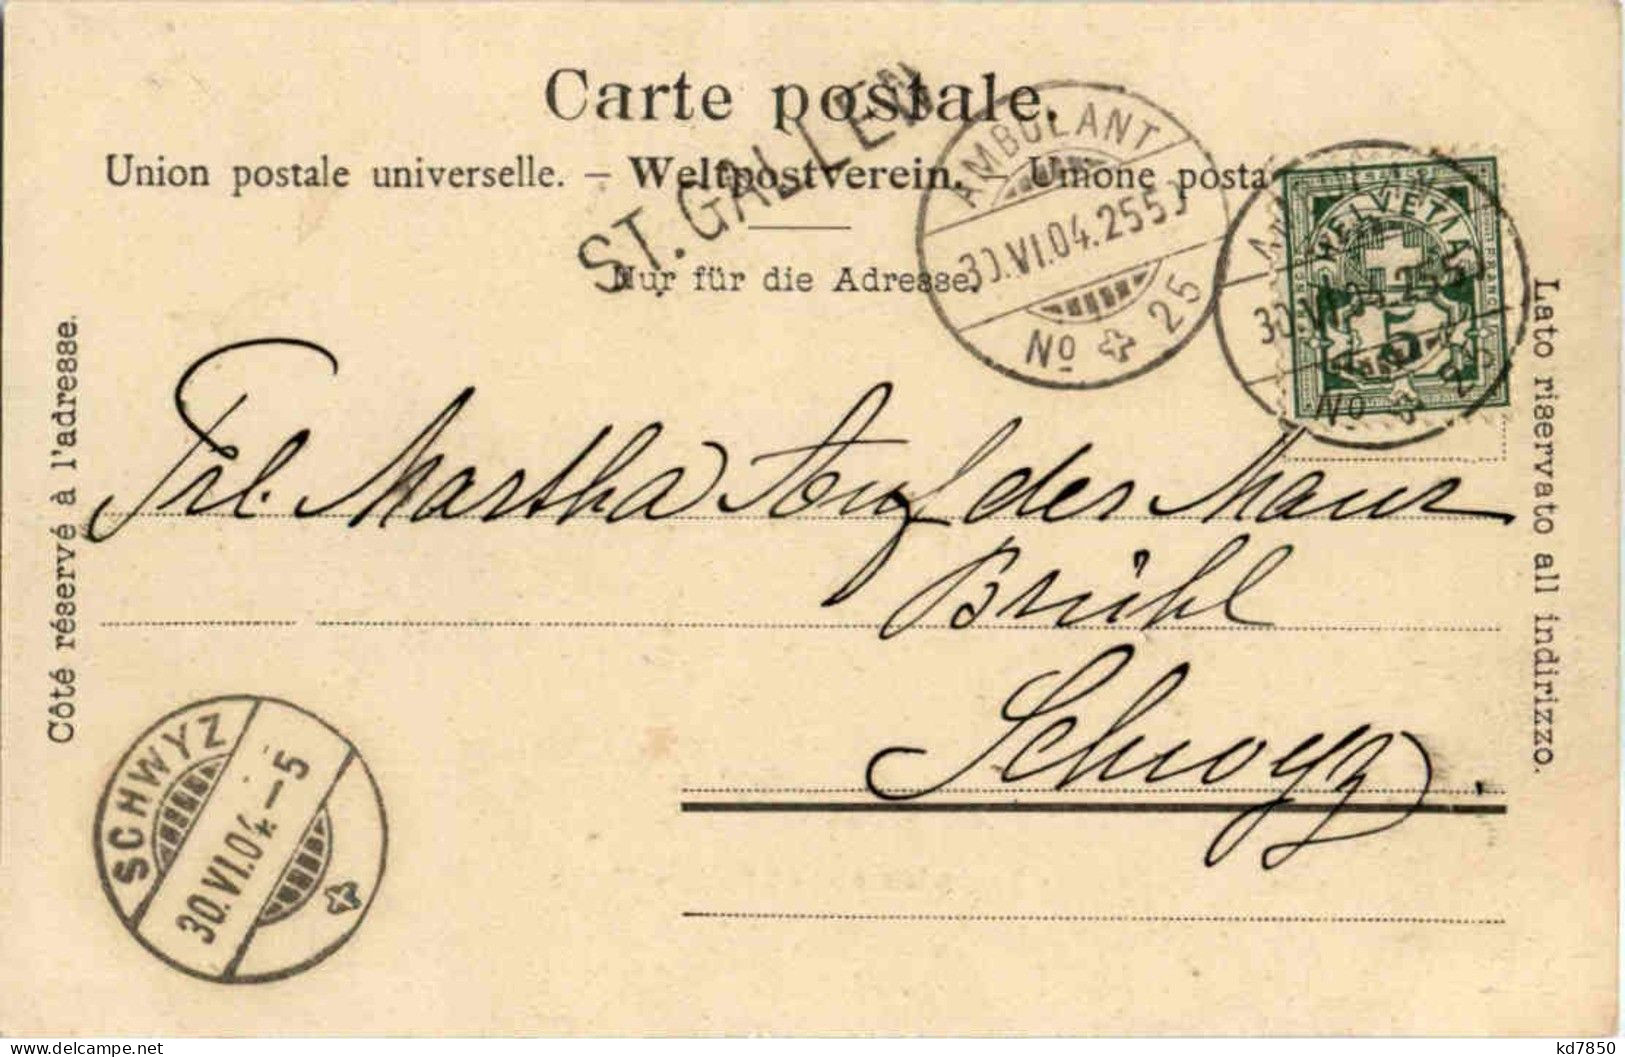 Carte postale.
Union postale universelle. – Weltpostverein. – Unione posta
ST. GALLEN
Nur für die Adresse.
AMBULANT
30.VI.04.2553
No 25
HELVETIA
5
30.VI.04.255
No 25
Côté réservé à l'adresse.
Lato riservato all indirizzo.
Frl. Martha Auf der Maur
Brühl
Schwyz.
SCHWYZ
30.VI.04.–5
delcampe.net
kd7850